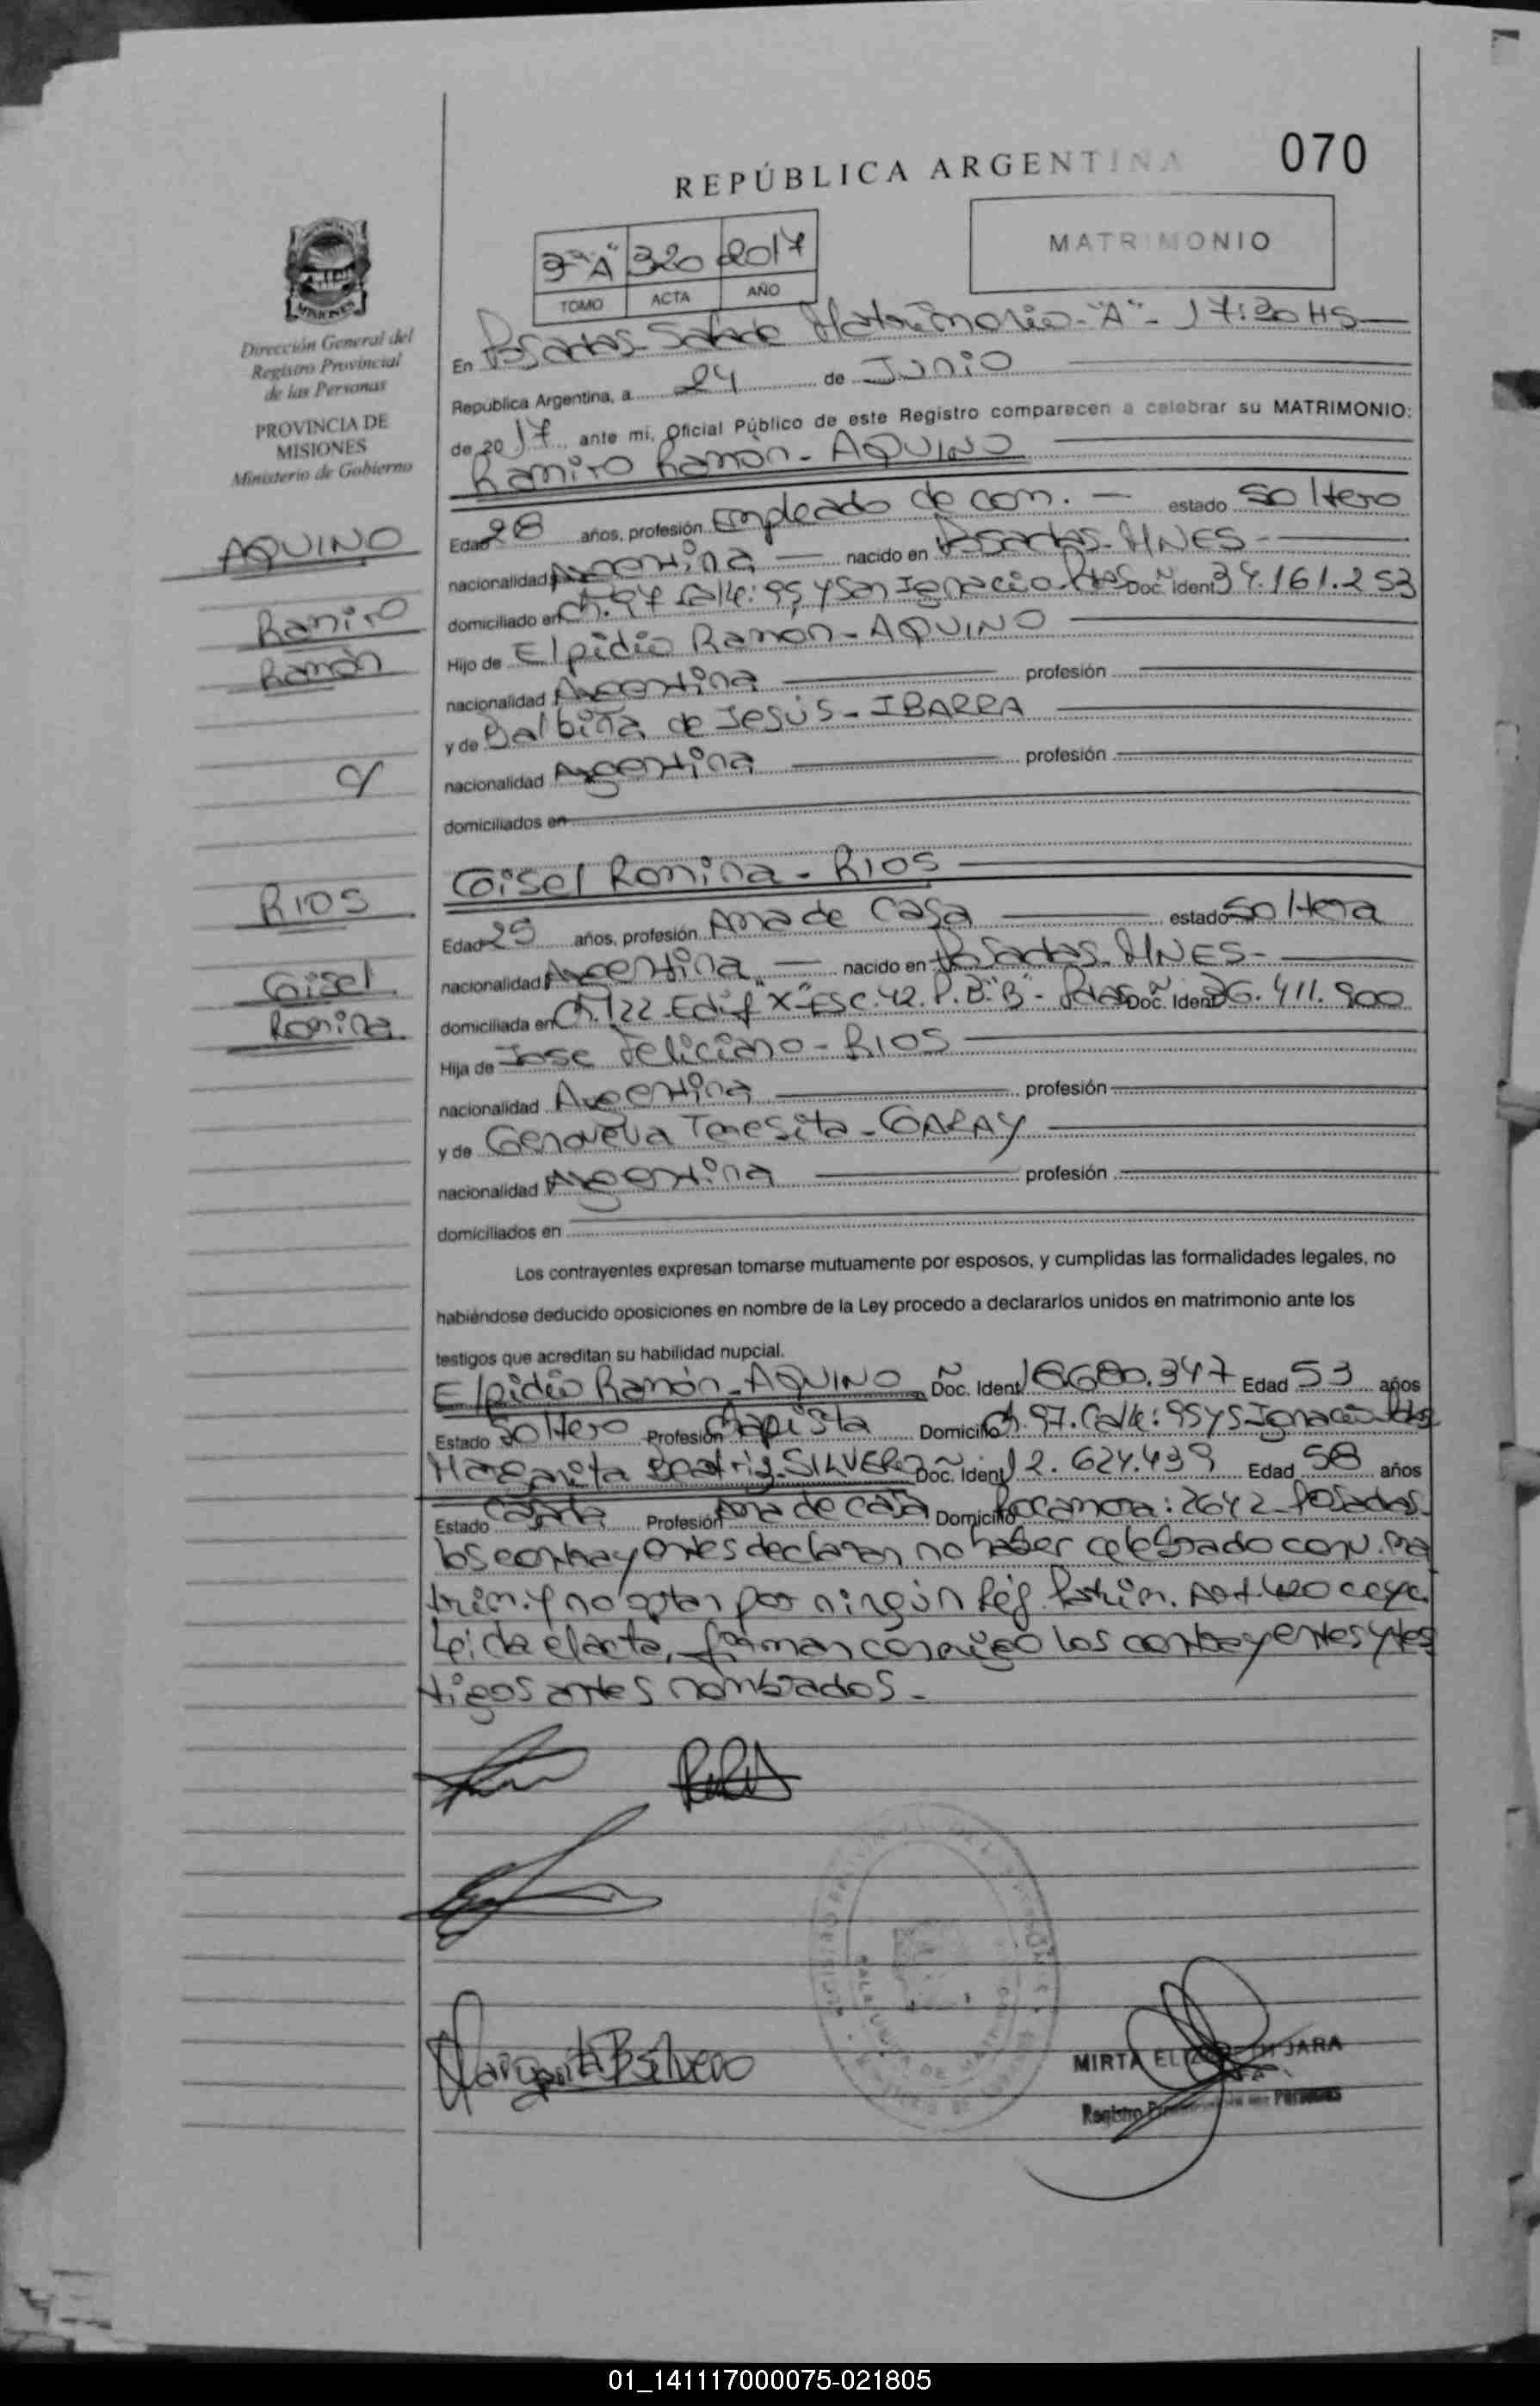 070
REPÚBLICA ARGENTINA
MATRIMONIO
3º "A" 320 2017
TOMO ACTA AÑO
MISIONES
Dirección General del
Registro Provincial
de las Personas
PROVINCIA DE
MISIONES
Ministerio de Gobierno
En Posadas - Sala de Matrimonio - "A" - 17:20 HS
República Argentina, a 24 de Junio
de 20 17 ante mi, Oficial Público de este Registro comparecen a celebrar su MATRIMONIO:
Ramiro Ramón - AQUINO
AQUINO
Ramiro
Ramón
Edad 28 años, profesión Empleado de com. - estado Soltero
nacionalidad Argentina nacido en Posadas - MNES -
domiciliado en Ch. 97 Calle: 95 y San Ignacio - Pdas Doc. Ident 34.161.253
Hijo de Elpidio Ramón - AQUINO
nacionalidad Argentina profesión
y de Balbina de Jesús - IBARRA
nacionalidad Argentina profesión
domiciliados en
y
RIOS
Gisel
Romina
Gisel Romina - RIOS
Edad 25 años, profesión Ama de Casa estado Soltera
nacionalidad Argentina nacido en Posadas - MNES -
domiciliada en Ch. 122 - Edif "X" - Esc. 42. P.B. "B" - Pdas Doc. Ident 36.411.900
Hija de Jose Feliciano - RIOS
nacionalidad Argentina profesión
y de Genoveva Teresita - GARAY
nacionalidad Argentina profesión
domiciliados en
Los contrayentes expresan tomarse mutuamente por esposos, y cumplidas las formalidades legales, no
habiéndose deducido oposiciones en nombre de la Ley procedo a declararlos unidos en matrimonio ante los
testigos que acreditan su habilidad nupcial.
Elpidio Ramón - AQUINO Doc. Ident 16.680.347 Edad 53 años
Estado Soltero Profesión Chapista Domicilio Ch. 97. Calle: 95 y S. Ignacio - Pdas
Margarita Beatriz - SILVERO Doc. Ident 12.624.439 Edad 58 años
Estado Profesión Ama de casa Domicilio Rocamora: 2642 - Posadas -
los contrayentes declaran no haber celebrado conv. ma
trim. y no optan por ningún Rég. Patrim. Art. 420 CCyC.
Leída el acta, firman conmigo los contrayentes y tes
tigos antes nombrados -
Margarita B Silvero
MIRTA JARA
Registro Personas
01_141117000075-021805